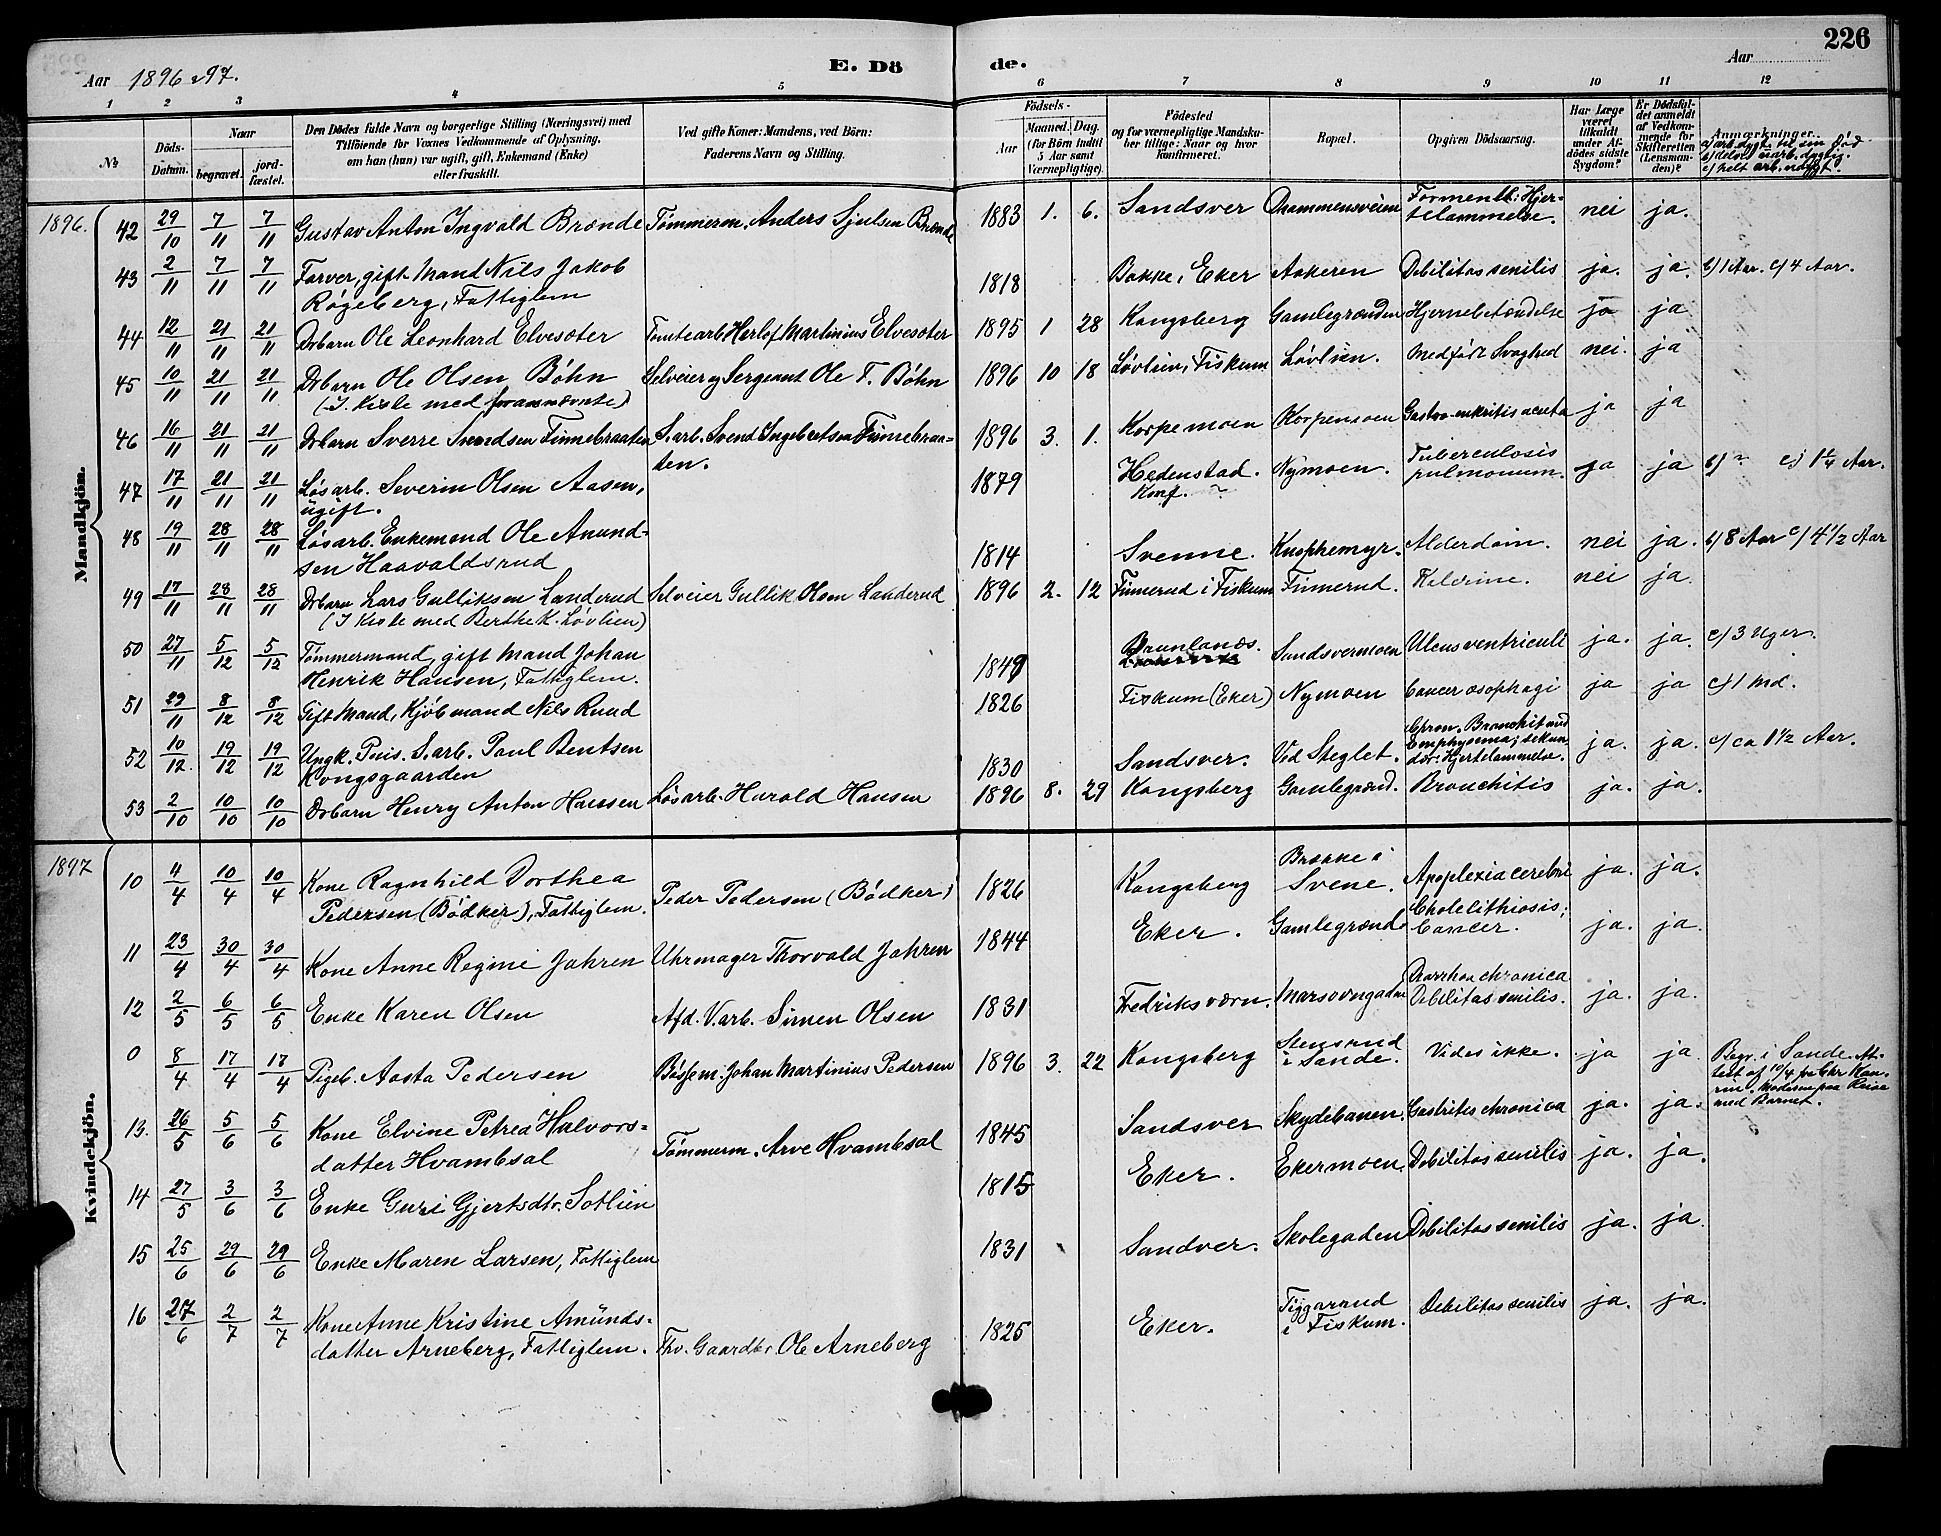 226
Aar 1896 & 97.
E. Dö de.
Aar
1 2 3 4 5 6 7 8 9 10 11 12
No
Döds-Datum.
Naar
begravet. jordfæstet.
Den Dödes fulde Navn og borgerlige Stilling (Næringsvei) med
Tilföiende for Voxnes Vedkommende af Oplysning,
om han (hun) var ugift, gift, Enkemand (Enke)
eller fraskilt.
Ved gifte Koner: Mandens, ved Börn:
Faderens Navn og Stilling.
Födsels-
Aar Maaned. Dag.
(for Börn indtil
5 Aar samt
Værnepligtige).
Födested
og for værnepligtige Mandska-
ber tillige: Naar og hvor
konfirmeret.
Bopæl.
Opgiven Dödsaarsag.
Har Læge
været
tilkaldt
under Af-
dödes sidste
Sygdom?
Er Dödsfal-
det anmeldt
af Vedkom-
mende for
Skifteretten
(Lensman-
den)?
Anmærkninger.
Mandkjön.
1896.
42 29/10 7/11 7/11 Gustav Anton Ingvald Brænde Tømmerm. Anders Sjulsen Brænde 1883 1. 6. Sandsver Drammensveien Formentl. Hjer-
telammelse. nei ja.
43 2/11 7/11 7/11 Farver, gift Mand Nils Jakob
Røgeberg, Fattiglem 1818 Bakke, Eker Aakeren Debilitas senilis ja. ja. b/1 Aar. c/4 Aar.
44 12/11 21/11 21/11 Drbarn Ole Leonhard Elvesæter Tomtearb Herlof Martinius Elvesæter 1895 1 28 Kongsberg Gamlegrænden Hjernebetændelse ja ja
45 10/11 21/11 21/11 Drbarn Ole Olsen Bøhn
(I Kiste med forannævnte) Selveier og Sergeant Ole T. Bøhn 1896 10 18 Løvlien, Fiskum Løvlien. Medfødt Svaghed nei. ja
46 16/11 21/11 21/11 Drbarn Sverre Svendsen Finnebraaten S.arb. Svend Ingebretsen Finnebraa-
ten. 1896 3. 1. Korpemoen Korpemoen Gastro-enkritis acuta ja ja
47 17/11 21/11 21/11 Løsarb. Severin Olsen Aasen,
ugift. 1879 Hedenstad.
Konf. Nymoen. Tuberculosis
pulmonum. ja ja b/ " c/ 1 1/4 Aar.
48 19/11 28/11 28/11 Løsarb. Enkemand Ole Amund-
sen Haavaldsrud 1814 Svenne. Knophemyr. Alderdom. nei ja. b/8 Aar c/4 1/2 Aar
49 17/11 28/11 28/11 Drbarn Lars Gulliksen Landerud
(I Kiste med Berthe K. Løvlien) Selveier Gullik Olsen Landerud 1896 2. 12 Finnerud i Fiskum Finnerud. Kolerine. nei ja.
50 27/11 5/12 5/12 Tømmermand, gift Mand Johan
Henrik Hansen, Fattiglem. 1849 Brunlanæs. Sandsvermoen Ulcus ventriculi ja. ja. c/3 Uger.
51 29/11 8/12 8/12 Gift Mand, Kjøbmand Nils Ruud 1826 Fiskum (Eker) Nymoen Cancer osophagi ja ja c/1 Md.
52 10/12 19/12 19/12 Ungk. Pens. S.arb. Paul Bentsen
Kongsgaarden 1830 Sandsver. Ved Steglet. Chron. Bronchit med
Emphysema; sekun-
dær: Hjertelammelse. ja. ja. c/ ca 1 1/2 Aar.
53 2/10 10/10 10/10 Drbarn Henry Anton Hansen Løsarb. Harald Hansen 1896 8. 29 Kongsberg Gamlegrænd. Bronchitis ja. ja.
Kvindekjön.
1897
10 4/4 10/4 10/4 Kone Ragnhild Dorthea
Pedersen (Bødker), Fattiglem. Peder Pedersen (Bødker) 1826 Kongsberg Brække i
Svene. Apoplexia cerebri ja. ja.
11 23/4 30/4 30/4 Kone Anne Regine Jahren Uhrmager Thorvald Jahren 1844 Eker. Gamlegrænd. Cholelithiosis;
Cancer. ja. ja.
12 2/5 6/5 6/5 Enke Karen Olsen Afd. V.arb. Simen Olsen 1831 Fredriksværn. Marsovngaden Diarrhoa chronica
Debilitas senilis. ja. ja.
0 8/4 17/4 17/4 Pigeb. Aasta Pedersen Bøssem. Johan Martinius Pedersen 1896 3. 22 Kongsberg Stensrud
i Sande. Vides ikke. ja ja. Begr. i Sande. At-
test af 10/4 fra Chr Kon-
rin. Moderen paa Reise
med Barnet.
13. 26/5 5/6 5/6 Kone Elvine Petrea Halvors-
datter Hvambsal Tømmerm. Arve Hvambsal 1845 Sandsver Skydebanen. Gastritis chronica ja. ja.
14 27/5 3/6 3/6 Enke Guri Gjertsdtr. Sotlien 1815 Eker. Ekermoen. Debilitas senilis ja. ja.
15 25/6 29/6 29/6 Enke Maren Larsen, Fattiglem 1831 Sandver. Skolegaden Debilitas senilis ja. ja.
16 27/6 2/7 2/7 Kone Anne Kristine Amunds-
datter Arneberg, Fattiglem. Fhv. Gaardbr. Ole Arneberg 1825 Eker. Tiggarrud
i Fiskum. Debilitas senilis ja. ja.